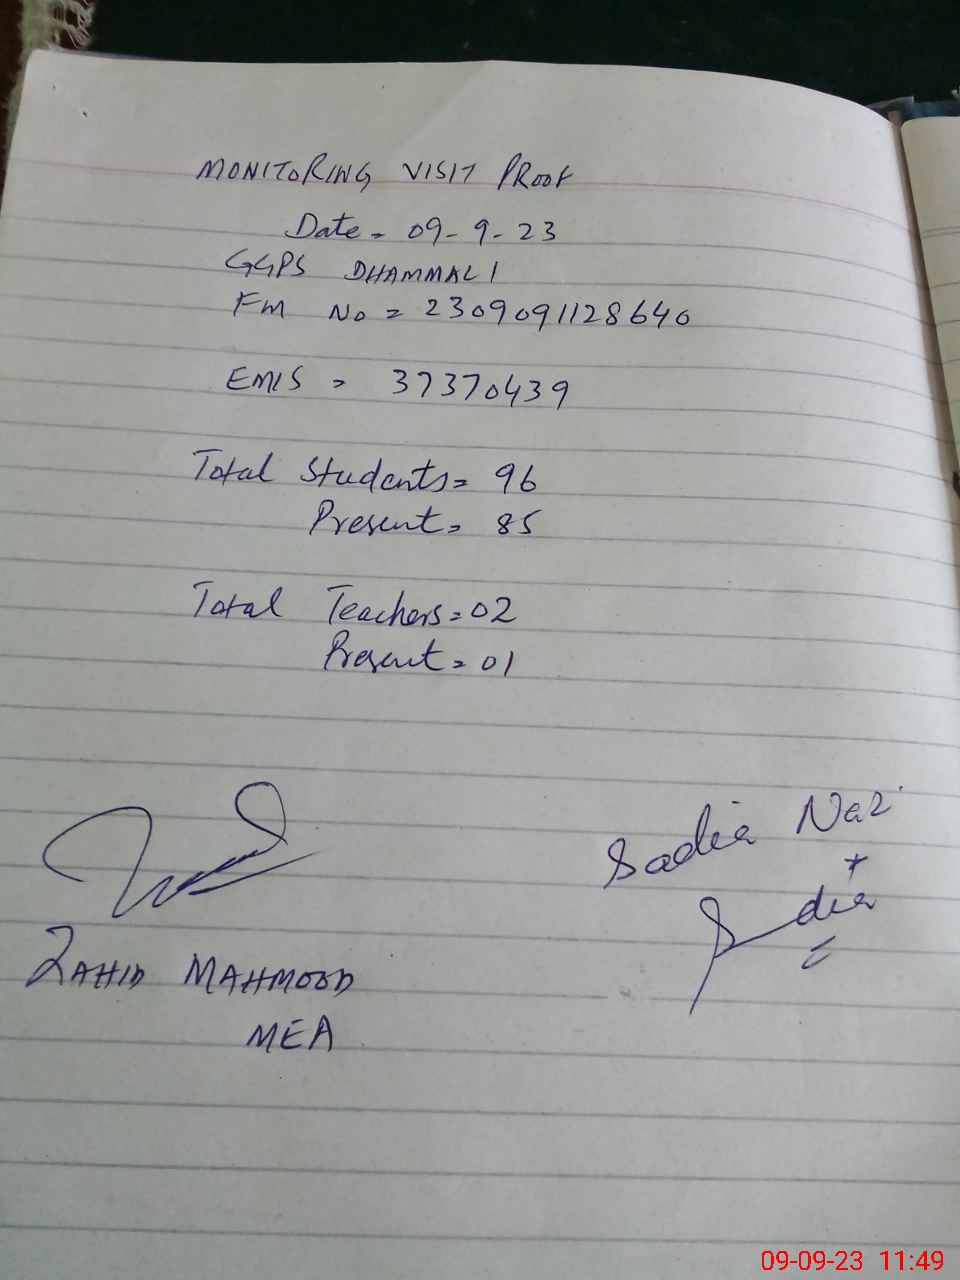 MONITORING VISIT PROOF
Date = 09-9-23
GGPS DHAMMALI
FM No = 2309091128640
EMIS = 37370439
Total Students = 96
Present = 85
Total Teachers = 02
Present = 01
Sadia Naz
Sadia
ZAHID MAHMOOD
MEA
09-09-23 11:49